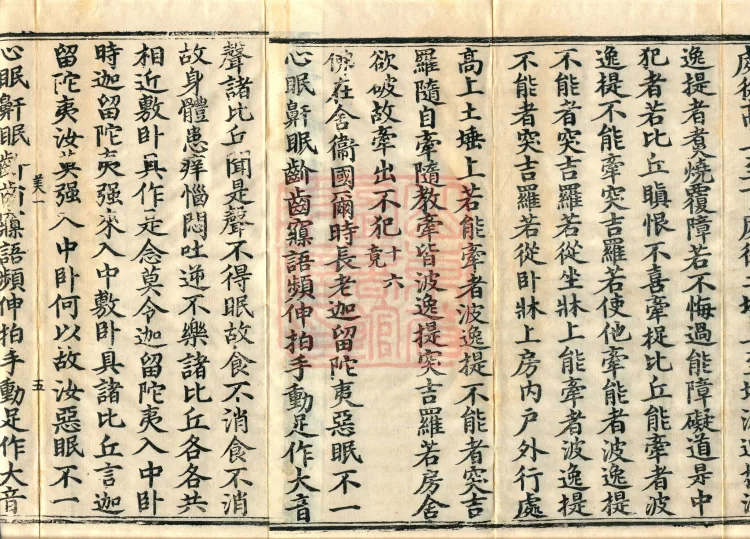 逸提者煑燒覆障若不悔過能障礙道是中
犯者若比丘瞋恨不喜牽捉比丘能牽者波
逸提不能牽突吉羅若使他牽能牽者波逸提
不能者突吉羅若從坐牀上能牽者波逸提
不能者突吉羅若從卧牀上房內戶外行處
高上土埵上若能牽者波逸提不能者突吉
羅隨自牽隨教牽皆波逸提突吉羅若房舍
欲破故牽出不犯十六竟
佛在舍衞國爾時長老迦留陀夷惡眠不一
心眠鼾眠齘齒寱語頻伸拍手動足作大音
聲諸比丘聞是聲不得眠故食不消食不消
故身體患痒惱悶吐逆不樂諸比丘各各共
相近敷卧具作是念莫令迦留陀夷入中卧
時迦留陀夷强來入中敷卧具諸比丘言迦
留陀夷汝莫强入中卧何以故汝惡眠不一
美一 五
心眠鼾眠齘齒寱語頻伸拍手動足作大音